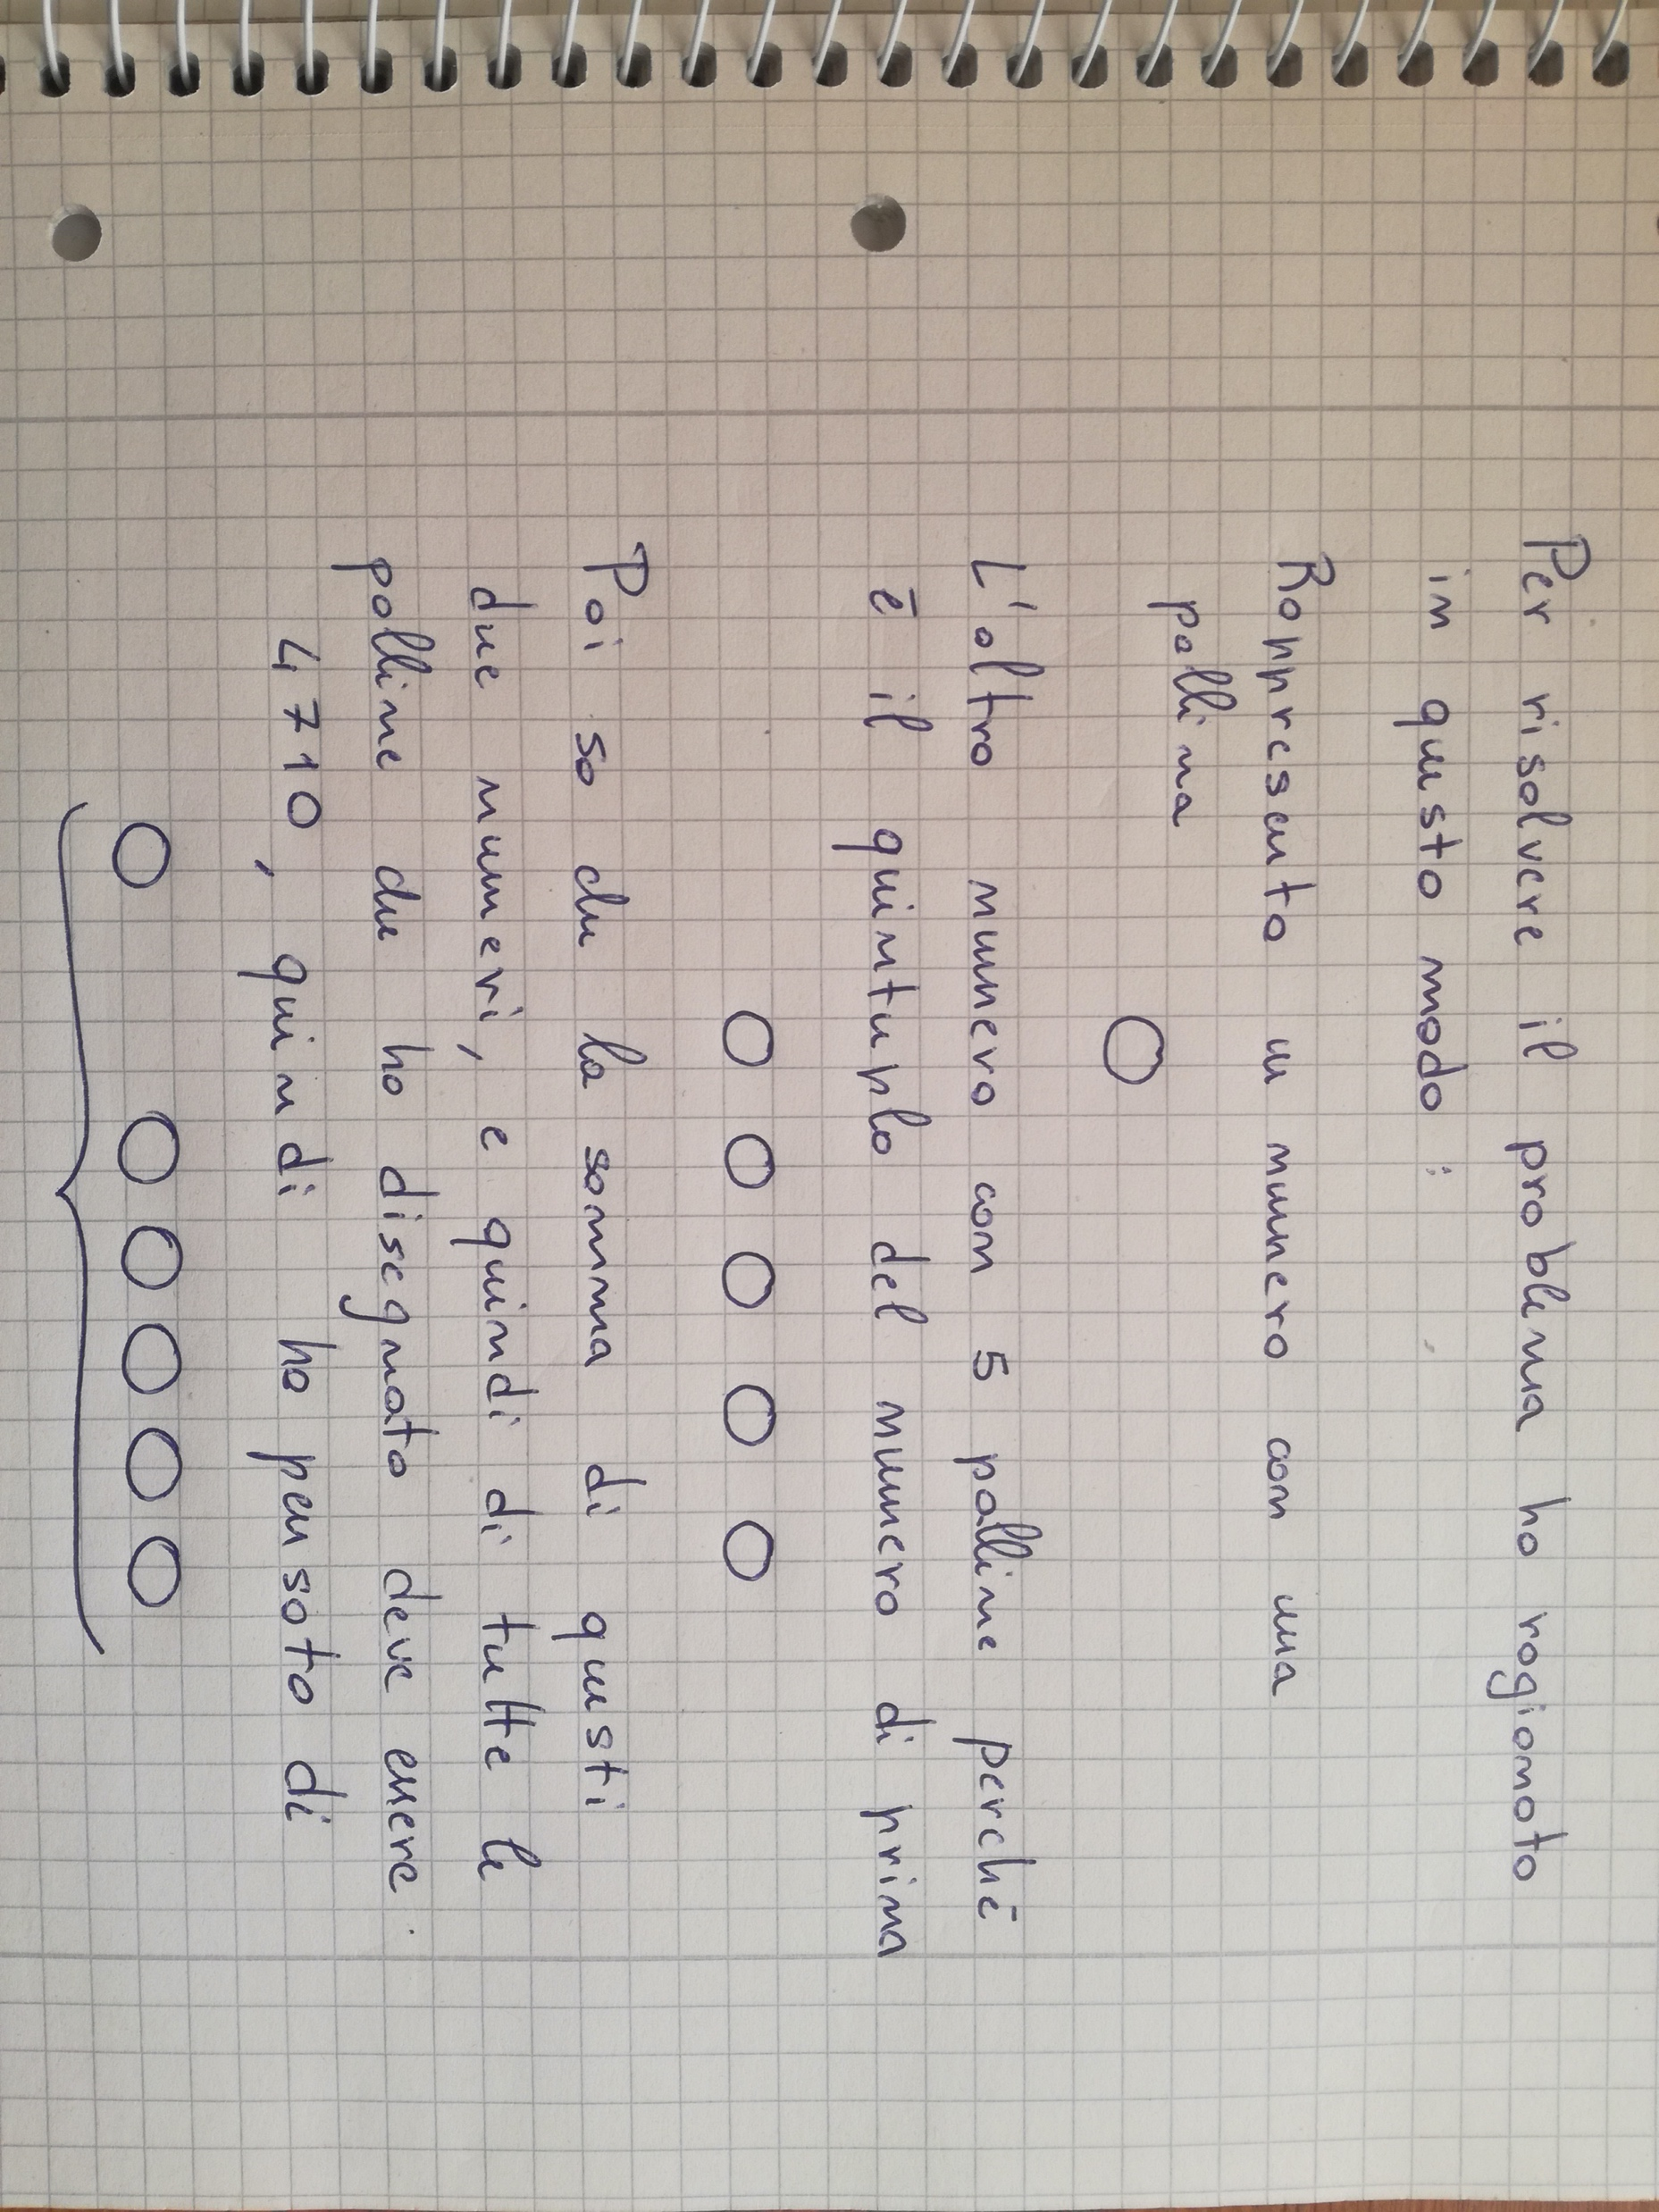 Per risolvere il problema ho ragionato
in questo modo:
Rappresento un numero con una
pallina
L'altro numero con 5 palline perchē
ē il quintuplo del numero di prima
Poi so che la somma di questi
due numeri, e quindi di tutte le
palline che ho disegnato deve essere
4710, quindi ho pensato di